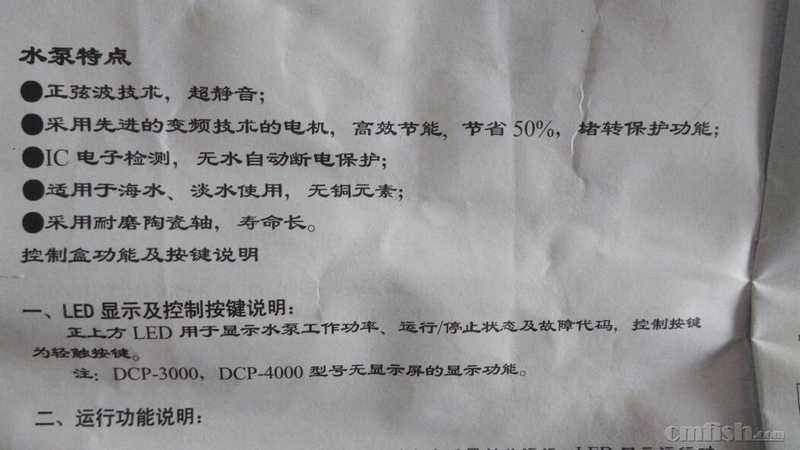 水泵特点
●正弦波技术，超静音；
●采用先进的变频技术的电机，高效节能，节省50%，堵转保护功能；
●IC 电子检测，无水自动断电保护；
●适用于海水、淡水使用，无铜元素；
●采用耐磨陶瓷轴，寿命长。
控制盒功能及按键说明
一、LED 显示及控制按键说明：
正上方 LED 用于显示水泵工作功率、运行/停止状态及故障代码，控制按键
为轻触按键。
注：DCP-3000，DCP-4000 型号无显示屏的显示功能。
二、运行功能说明：
cmfish.com